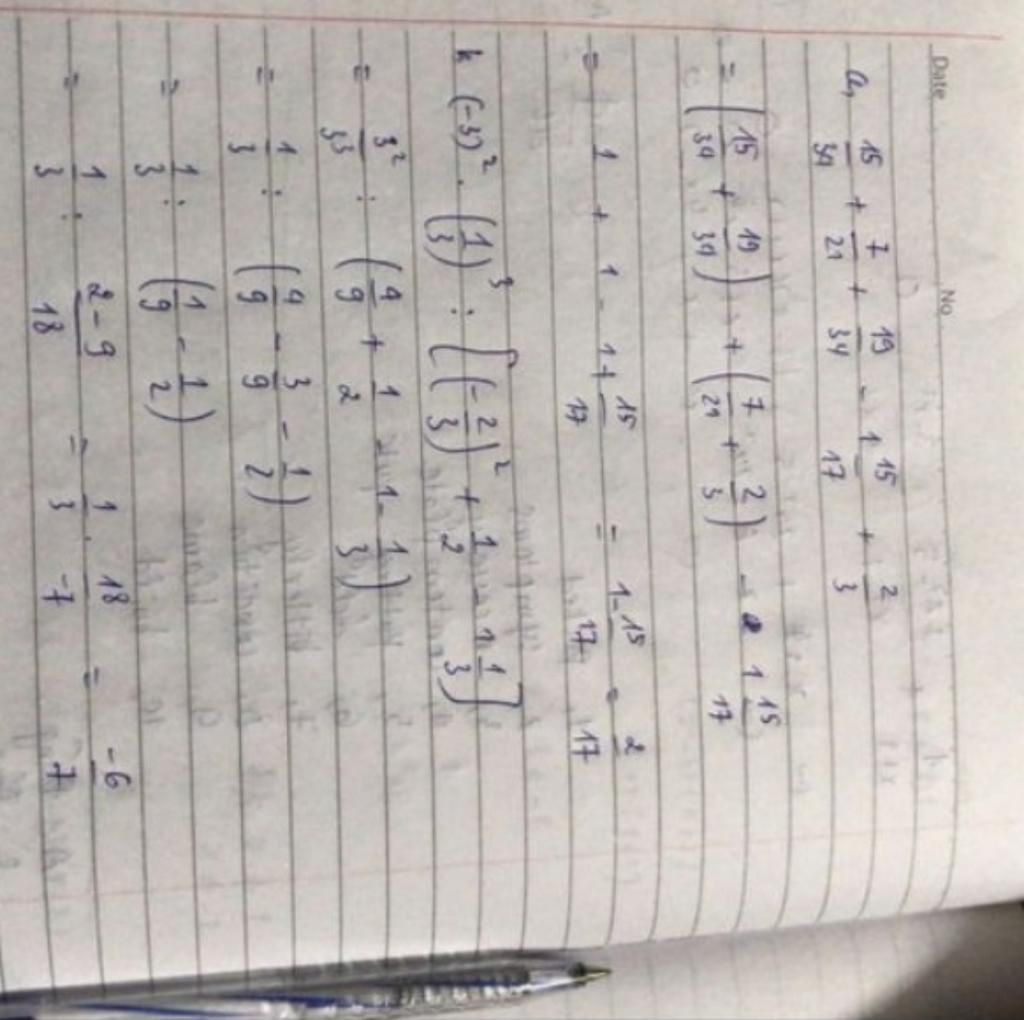 Date No
a, 15/34 + 7/21 + 19/34 - 1 15/17 + 2/3
= (15/34 + 19/34) + (7/21 + 2/3) - 1 15/17
= 1 + 1 - 1 + 15/17 = 1 - 15/17 = 2/17
k (-3)² . (1/3)³ : [(-2/3)² + 1/2 - 1 1/3]
= 3²/3³ : (4/9 + 1/2 - 1 - 1/3)
= 1/3 : (4/9 - 3/9 - 1/2)
= 1/3 : (1/9 - 1/2)
= 1/3 : 2-9/18 = 1/3 . 18/-7 = -6/7